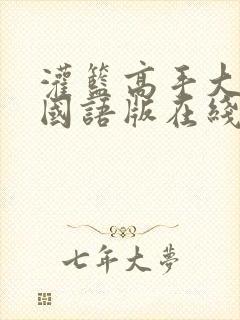 灌籃高手大
國語版在綫
七年大夢